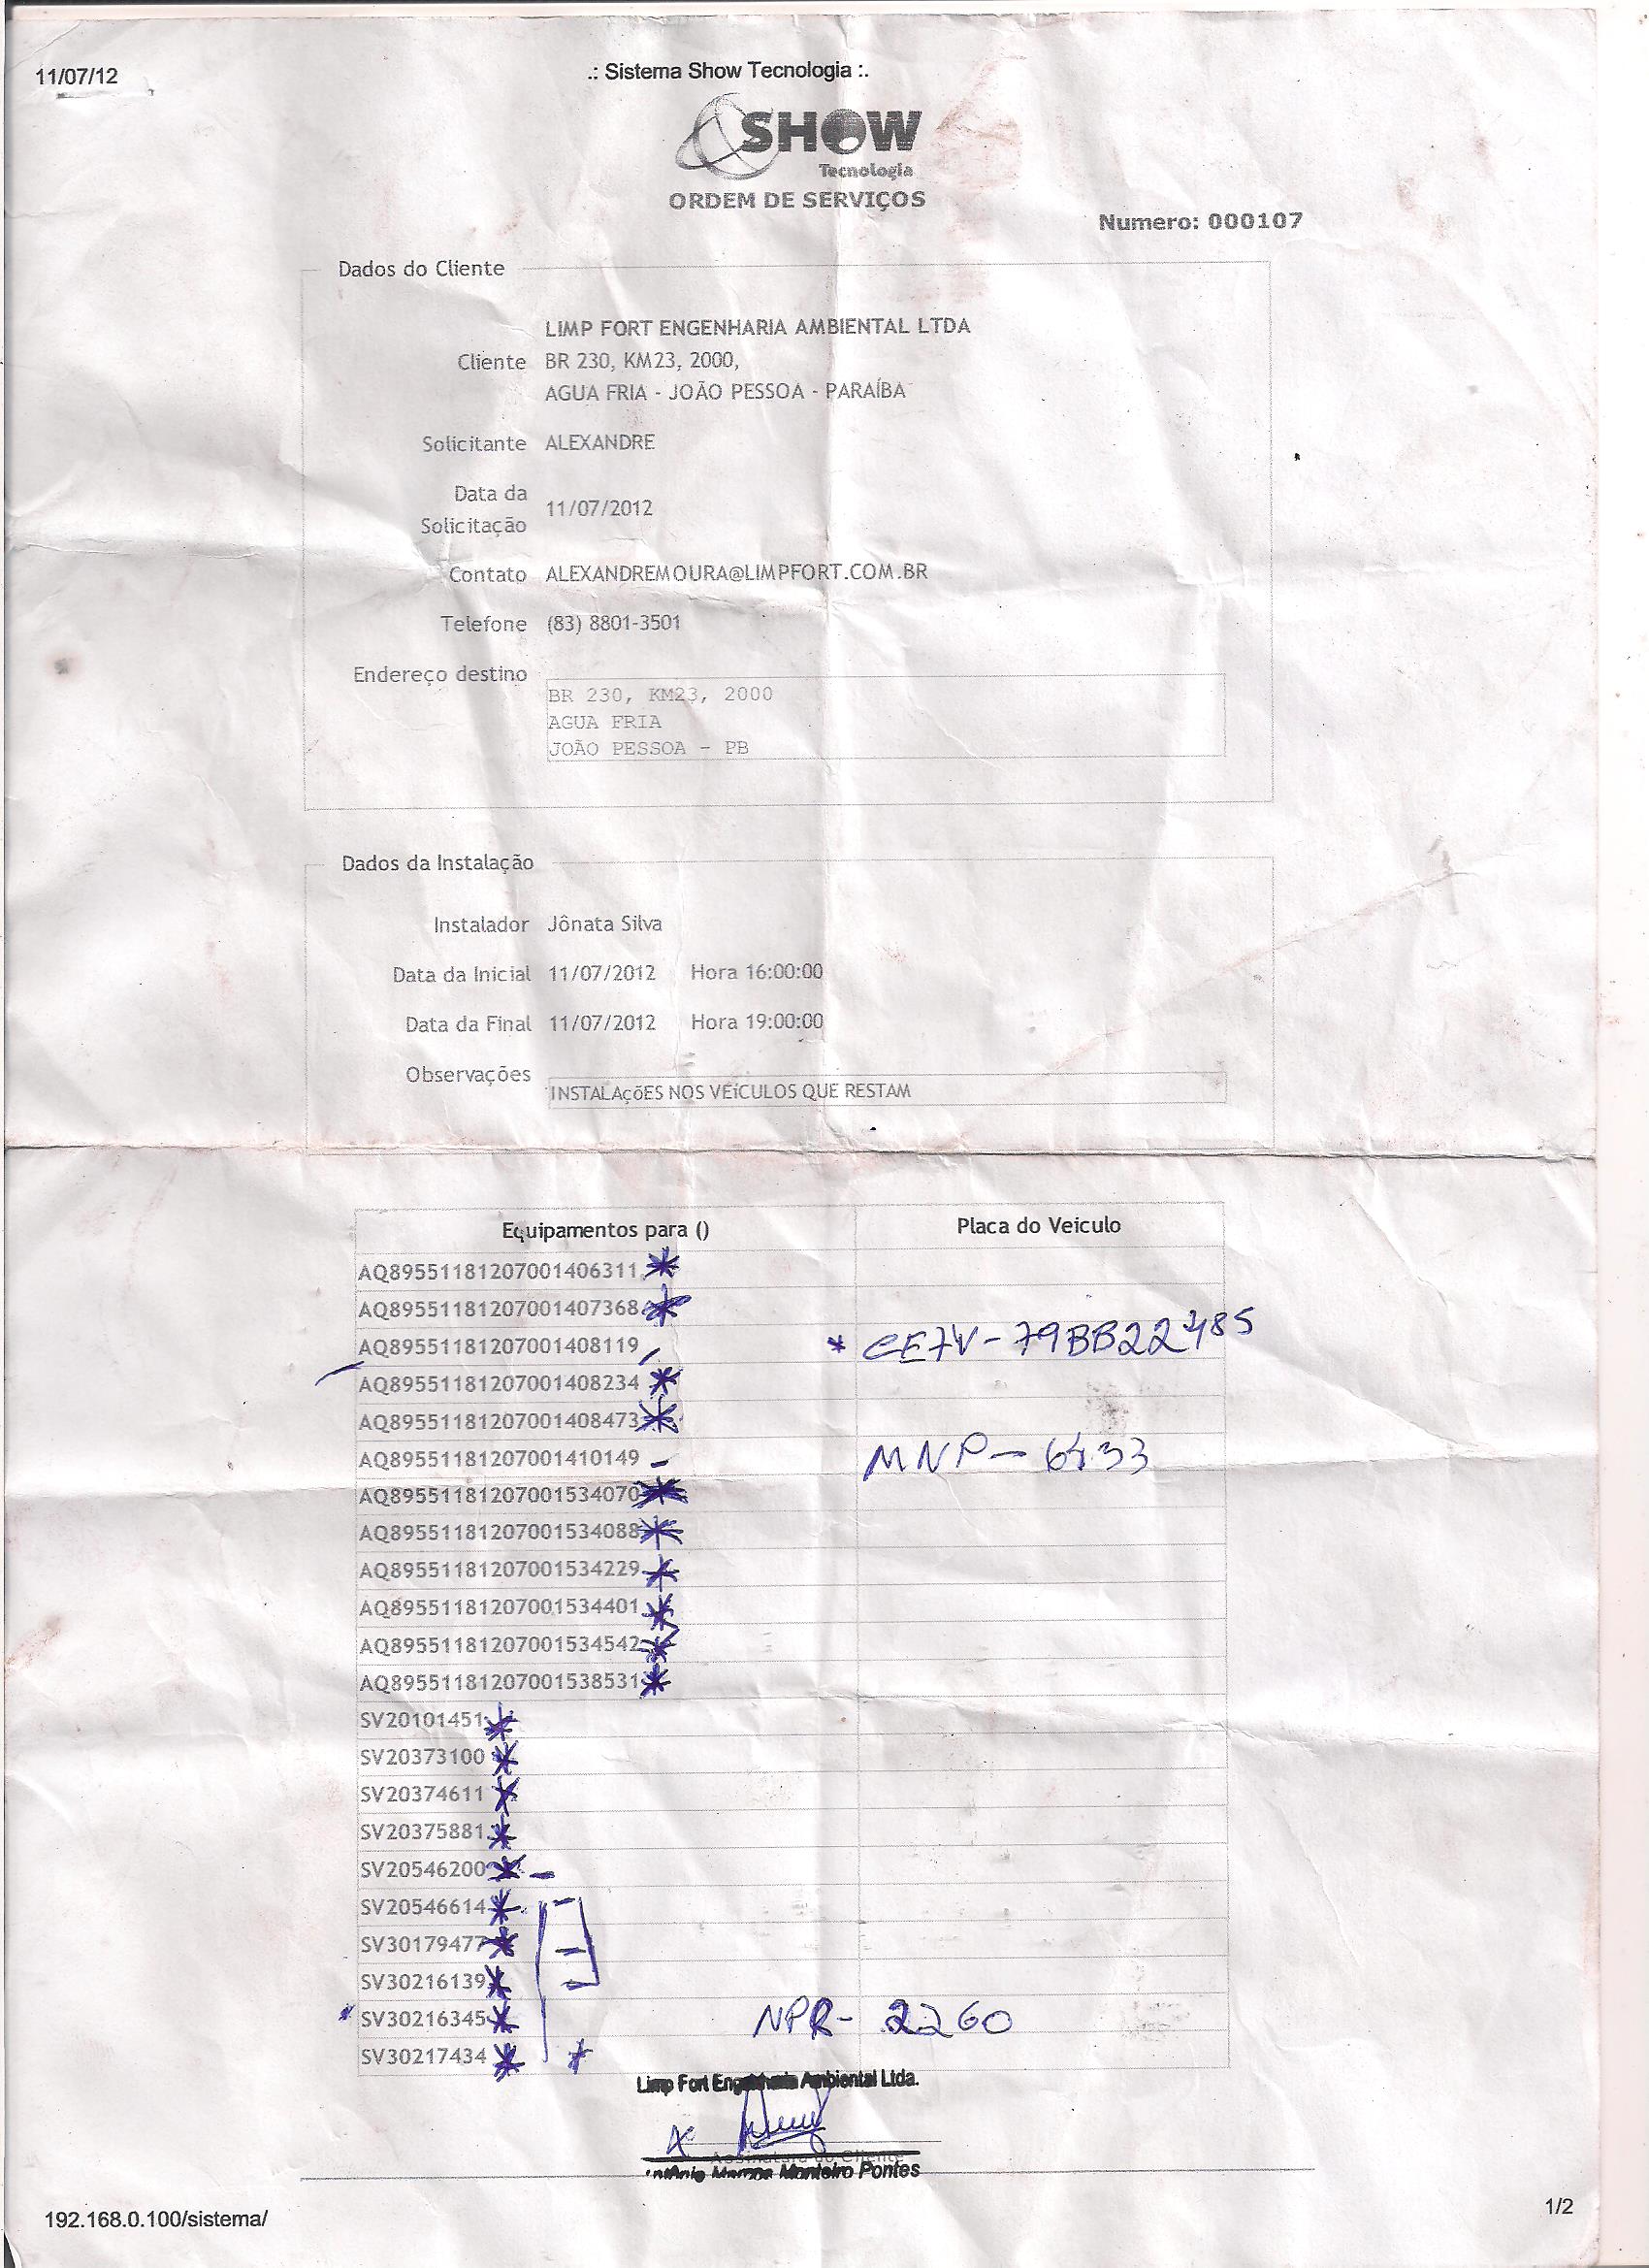 11/07/12
.: Sistema Show Tecnologia :.
SHOW
Tecnologia
ORDEM DE SERVIÇOS
Numero: 000107
Dados do Cliente
LIMP FORT ENGENHARIA AMBIENTAL LTDA
Cliente BR 230, KM23, 2000,
AGUA FRIA - JOÃO PESSOA - PARAÍBA
Solicitante ALEXANDRE
Data da Solicitação 11/07/2012
Contato ALEXANDREMOURA@LIMPFORT.COM.BR
Telefone (83) 8801-3501
Endereço destino
BR 230, KM23, 2000
AGUA FRIA
JOÃO PESSOA - PB
Dados da Instalação
Instalador Jônata Silva
Data da Inicial 11/07/2012 Hora 16:00:00
Data da Final 11/07/2012 Hora 19:00:00
Observações
INSTALAçõES NOS VEíCULOS QUE RESTAM
Equipamentos para () Placa do Veiculo
AQ89551181207001406311 *
AQ89551181207001407368 *
AQ89551181207001408119
AQ89551181207001408234 *
AQ89551181207001408473 *
AQ89551181207001410149 - MNP - 6433
AQ89551181207001534070 *
AQ89551181207001534088 *
AQ89551181207001534229 *
AQ89551181207001534401 *
AQ89551181207001534542 *
AQ89551181207001538531 *
SV20101451 *
SV20373100 *
SV20374611 *
SV20375881 *
SV20546200 * -
SV20546614 *
SV30179477 *
SV30216139 *
SV30216345 * NPR- 2260
SV30217434 *
Limp Fort Engenharia Ambiental Ltda.
Assinatura do Cliente
Antônio Marcos Monteiro Pontes
192.168.0.100/sistema/
1/2